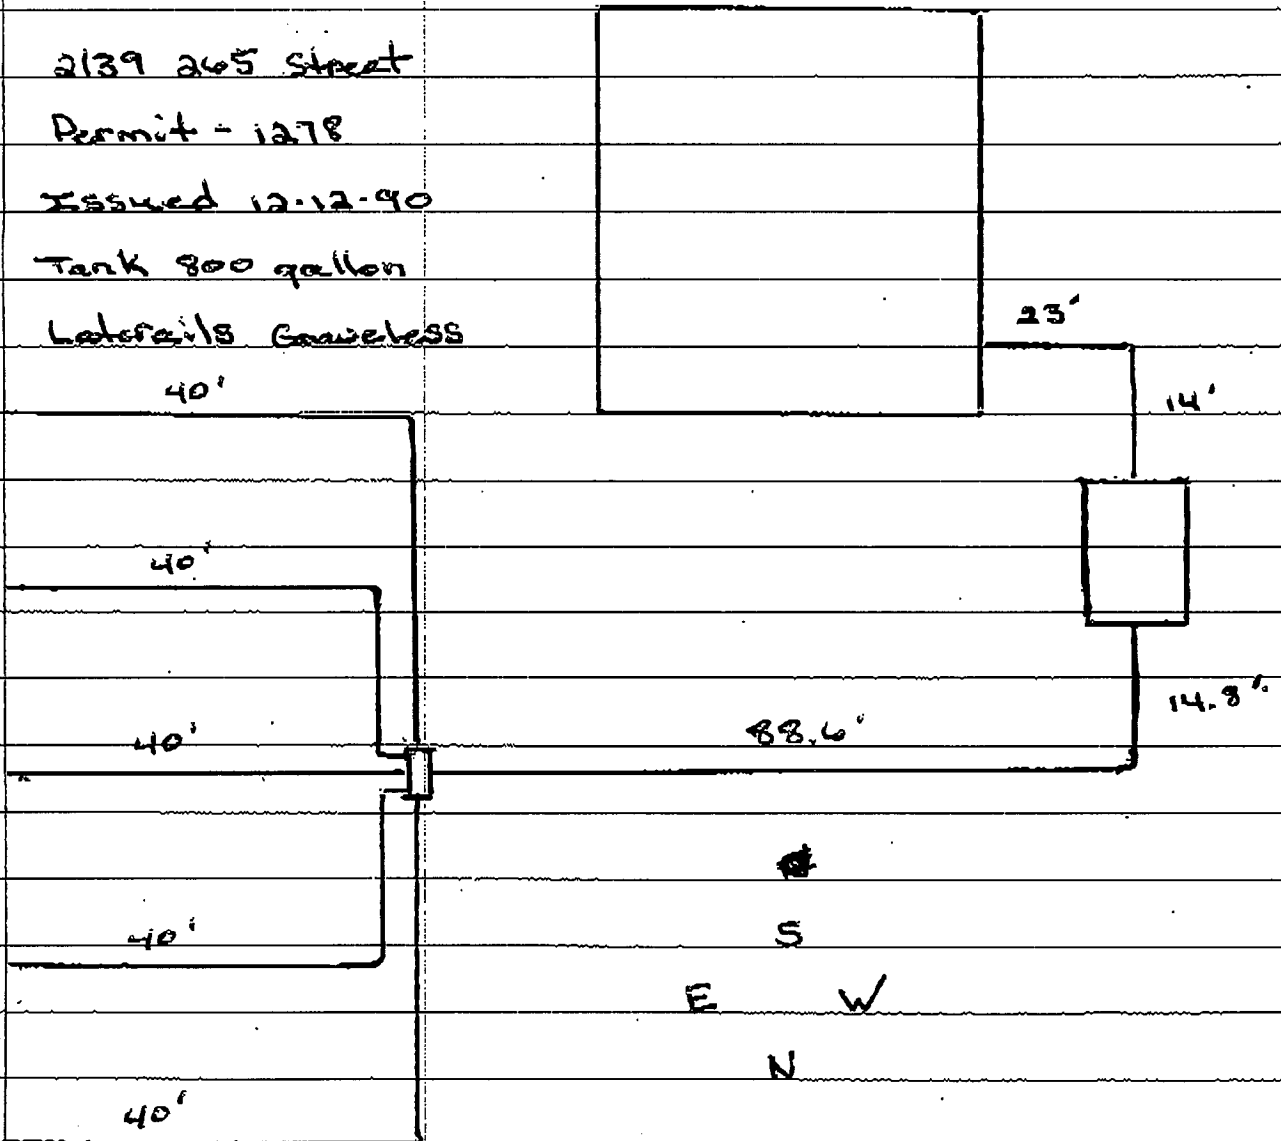 2139 265 Street
Permit - 1278
Issued 12-12-90
Tank 800 gallon
Laterails Graveless
23'
40'
14'
40'
14.8"
40'
88.6'
40'
S
E W
N
40'